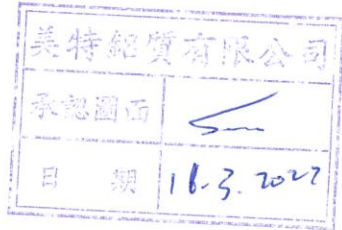 美特鋁質有限公司
承認圖面
日 期 16.3.2022